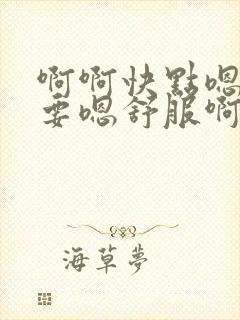 啊啊快點嗯
要嗯舒服啊
海草夢